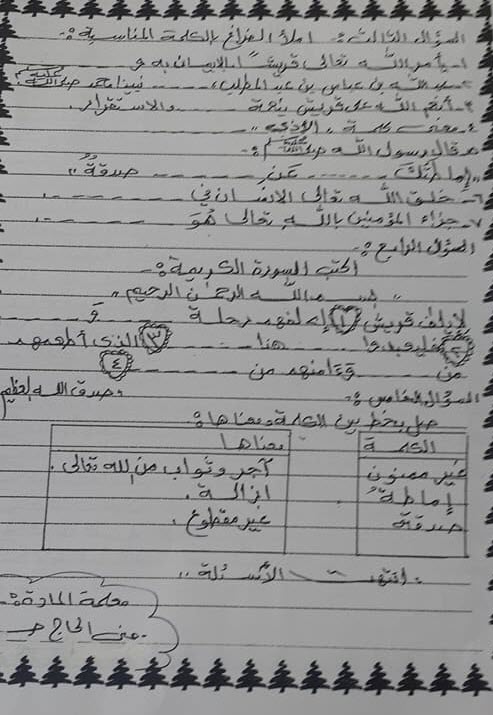 السؤال الثالث :- املأ الفراغ بالكلمة المناسبة :-
١- يأمر الله تعالى قريشاً الإيمان به و ـــــــ
٢- عبد الله بن عباس بن عبد المطلب، ـــــــ نبينا محمد صلى الله عليه وسلم
٣- أنعم الله على قريش بنعمة ـــــــ والاستقرار.
٤- معنى كلمة "الأذى" ـــــــ
٥- قال رسول الله صلى الله عليه وسلم :-
"إماطتك ـــــــ عن ـــــــ صدقةٌ"
٦- خلق الله تعالى الانسان في ـــــــ.
٧- جزاء المؤمنين بالله تعالى هُوَ ـــــــ.
السؤال الرابع :-
اكتب السورة الكريمة :-
"بسم الله الرحمن الرحيم"
لإيلف قريش (١) إلفهم رحلة ـــــــ وَ ـــــــ
(٢) فليعبدوا ـــــــ هذا ـــــــ (٣) الذي أطعمهم
من ـــــــ وءامنهم من ـــــــ (٤)
صدق الله العظيم
السؤال الخامس :-
صل بخط بين الكلمة ومعناها :-
الكلمة معناها
غير ممنون أجر وثواب من الله تعالى.
إماطةُ ازالة.
صدقة غير مقطوع.
انتهت الأسئلة ،،
معلمة المادة :-
منى الحاج